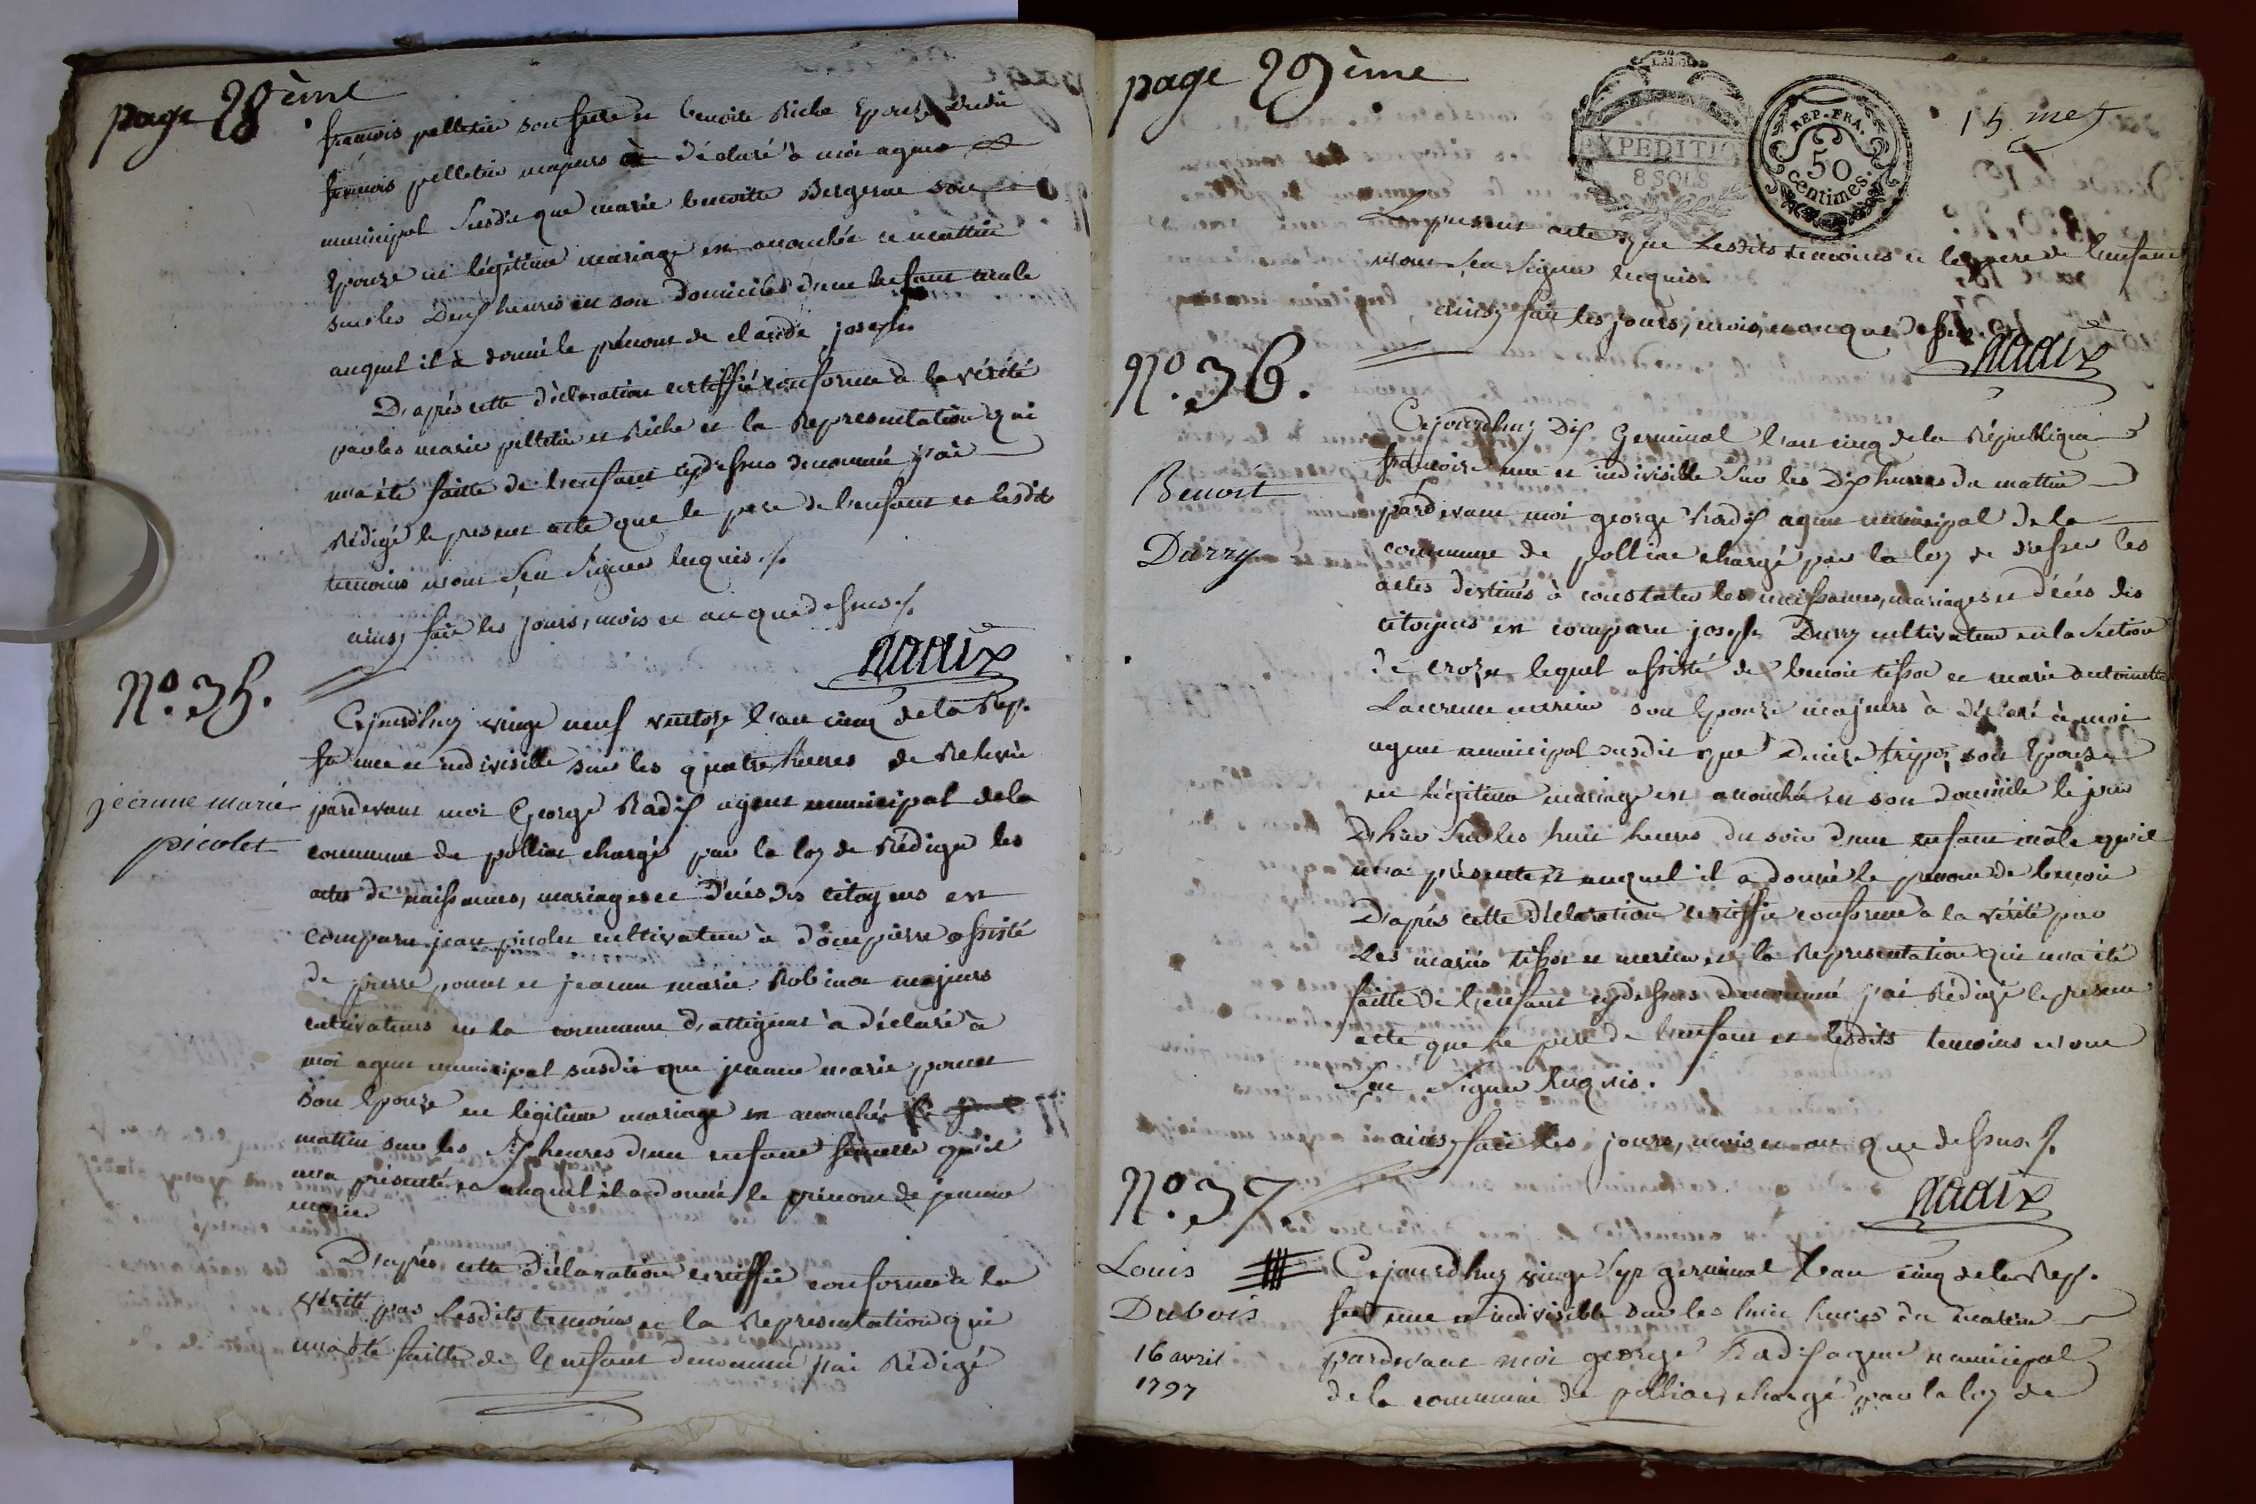 page 28ème
françois pelletier son frere et benoite Riche Epouse dudit
françois pelletier majeurs à déclaré à moi agent
municipal susdit que marie benoitte Bergeron son
Epouze en légitime mariage est accouchée ce mattin
sur les Deux heures en son domicile d'une Enfant mâle
auquel il à donné le prénom de claude joseph.
D'après cette déclaration certiffié conforme à la vérité
par les marie pelletier et Riche et la Représentation qui
m'a été faitte de l'enfant cy dessus denommé j'ai
Rédigé le present acte que le pere de l'enfant et lesdits
temoins n'ont Seu Signer Requis ./.
ainsy fait les jours, mois et an que dessus ./.
Radix
No. 35.
jeanne marie
picolet
Cejourdhuy vingt neuf ventose l'an cinq de la Rep.
fr. une et indivisible sur les quatre heures de Relevée
pardevant moi George Radix agent municipal de la
commune de polliat chargé par la loy de Rédiger les
actes de naissances, mariages et décès des citoyens est
comparu jean picolet cultivateur à dompierre assisté
de pierre poncet et jeanne marie Robin majeurs
cultivateurs en la commune d'attignat à déclaré à
moi agent municipal susdit que jeanne marie poncet
son Epouze en légitime mariage est accouchée ce
mattin sur les Six heures d'une enfant femelle qu'il
m'a présenté et auquel il a donné le prénom de jeanne
marie.
D'après cette déclaration certiffié conforme à la
vérité par lesdits temoins et la Représentation qui
m'a été faitte de l'enfant denommé j'ai Rédigé
page 29ème
EXPEDITIO
8 SOLS
REP. FRA.
50
centimes.
15 mes
Le present acte que Lesdits temoins et le pere de l'enfant
n'ont Seu Signer Requis.
ainsy fait les jours, mois, et an que dessus
Radix
No. 36.
Benoit
Durry
Cejourdhuy Dix Germinal l'an cinq de la République
françoise une et indivisible Sur les Dix heures du mattin
pardevant moi george Radix agent municipal de la
commune de polliat chargé par la loy de dresser les
actes destinés à constater les naissances, mariages et décès des
citoyens est comparu joseph Durry cultivateur en la Section
de crozet lequel assisté de benoit tissot et marie antoinette
Laurence son Epouze majeurs à déclaré à moi
agent municipal susdit que Denize son Epouze
en légitime mariage est accouchée en son domicile le jour
D'hier Sur les huit heures du soir d'une enfant mâle qu'il
m'a présenté et auquel il a donné le prenom de benoit
D'après cette déclaration certiffié conforme à la vérité par
Les mariés tissot et et la Représentation qui m'a été
faitte de l'enfant cy dessus denommé j'ai Rédigé le present
acte que le pere de l'enfant et lesdits temoins n'ont
Seu Signer Requis.
ainsy fait les jours, mois et an que dessus ./.
Radix
No. 37.
Louis
Dubois
16 avril
1797
Cejourdhuy vingt Sept germinal l'an cinq de la Rep.
fr. une et indivisible sur les huit heures du mattin
pardevant moi george Radix agent municipal
de la commune de polliat, chargé par la loy de